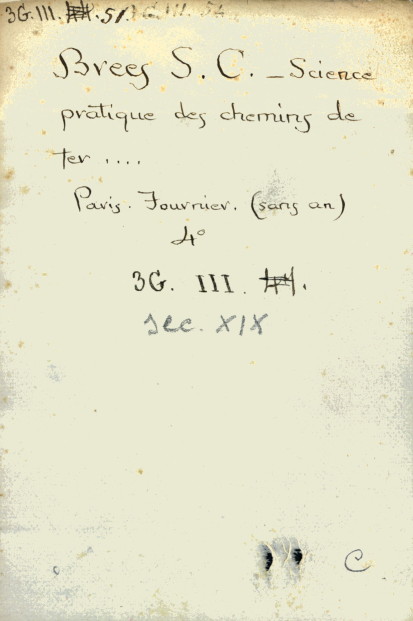 3G. III. 51
Brees S. C. _ Science
pratique des chemins de
fer ....
Paris. Fournier. (sans an)
4°
3G. III.
sec. XIX
C